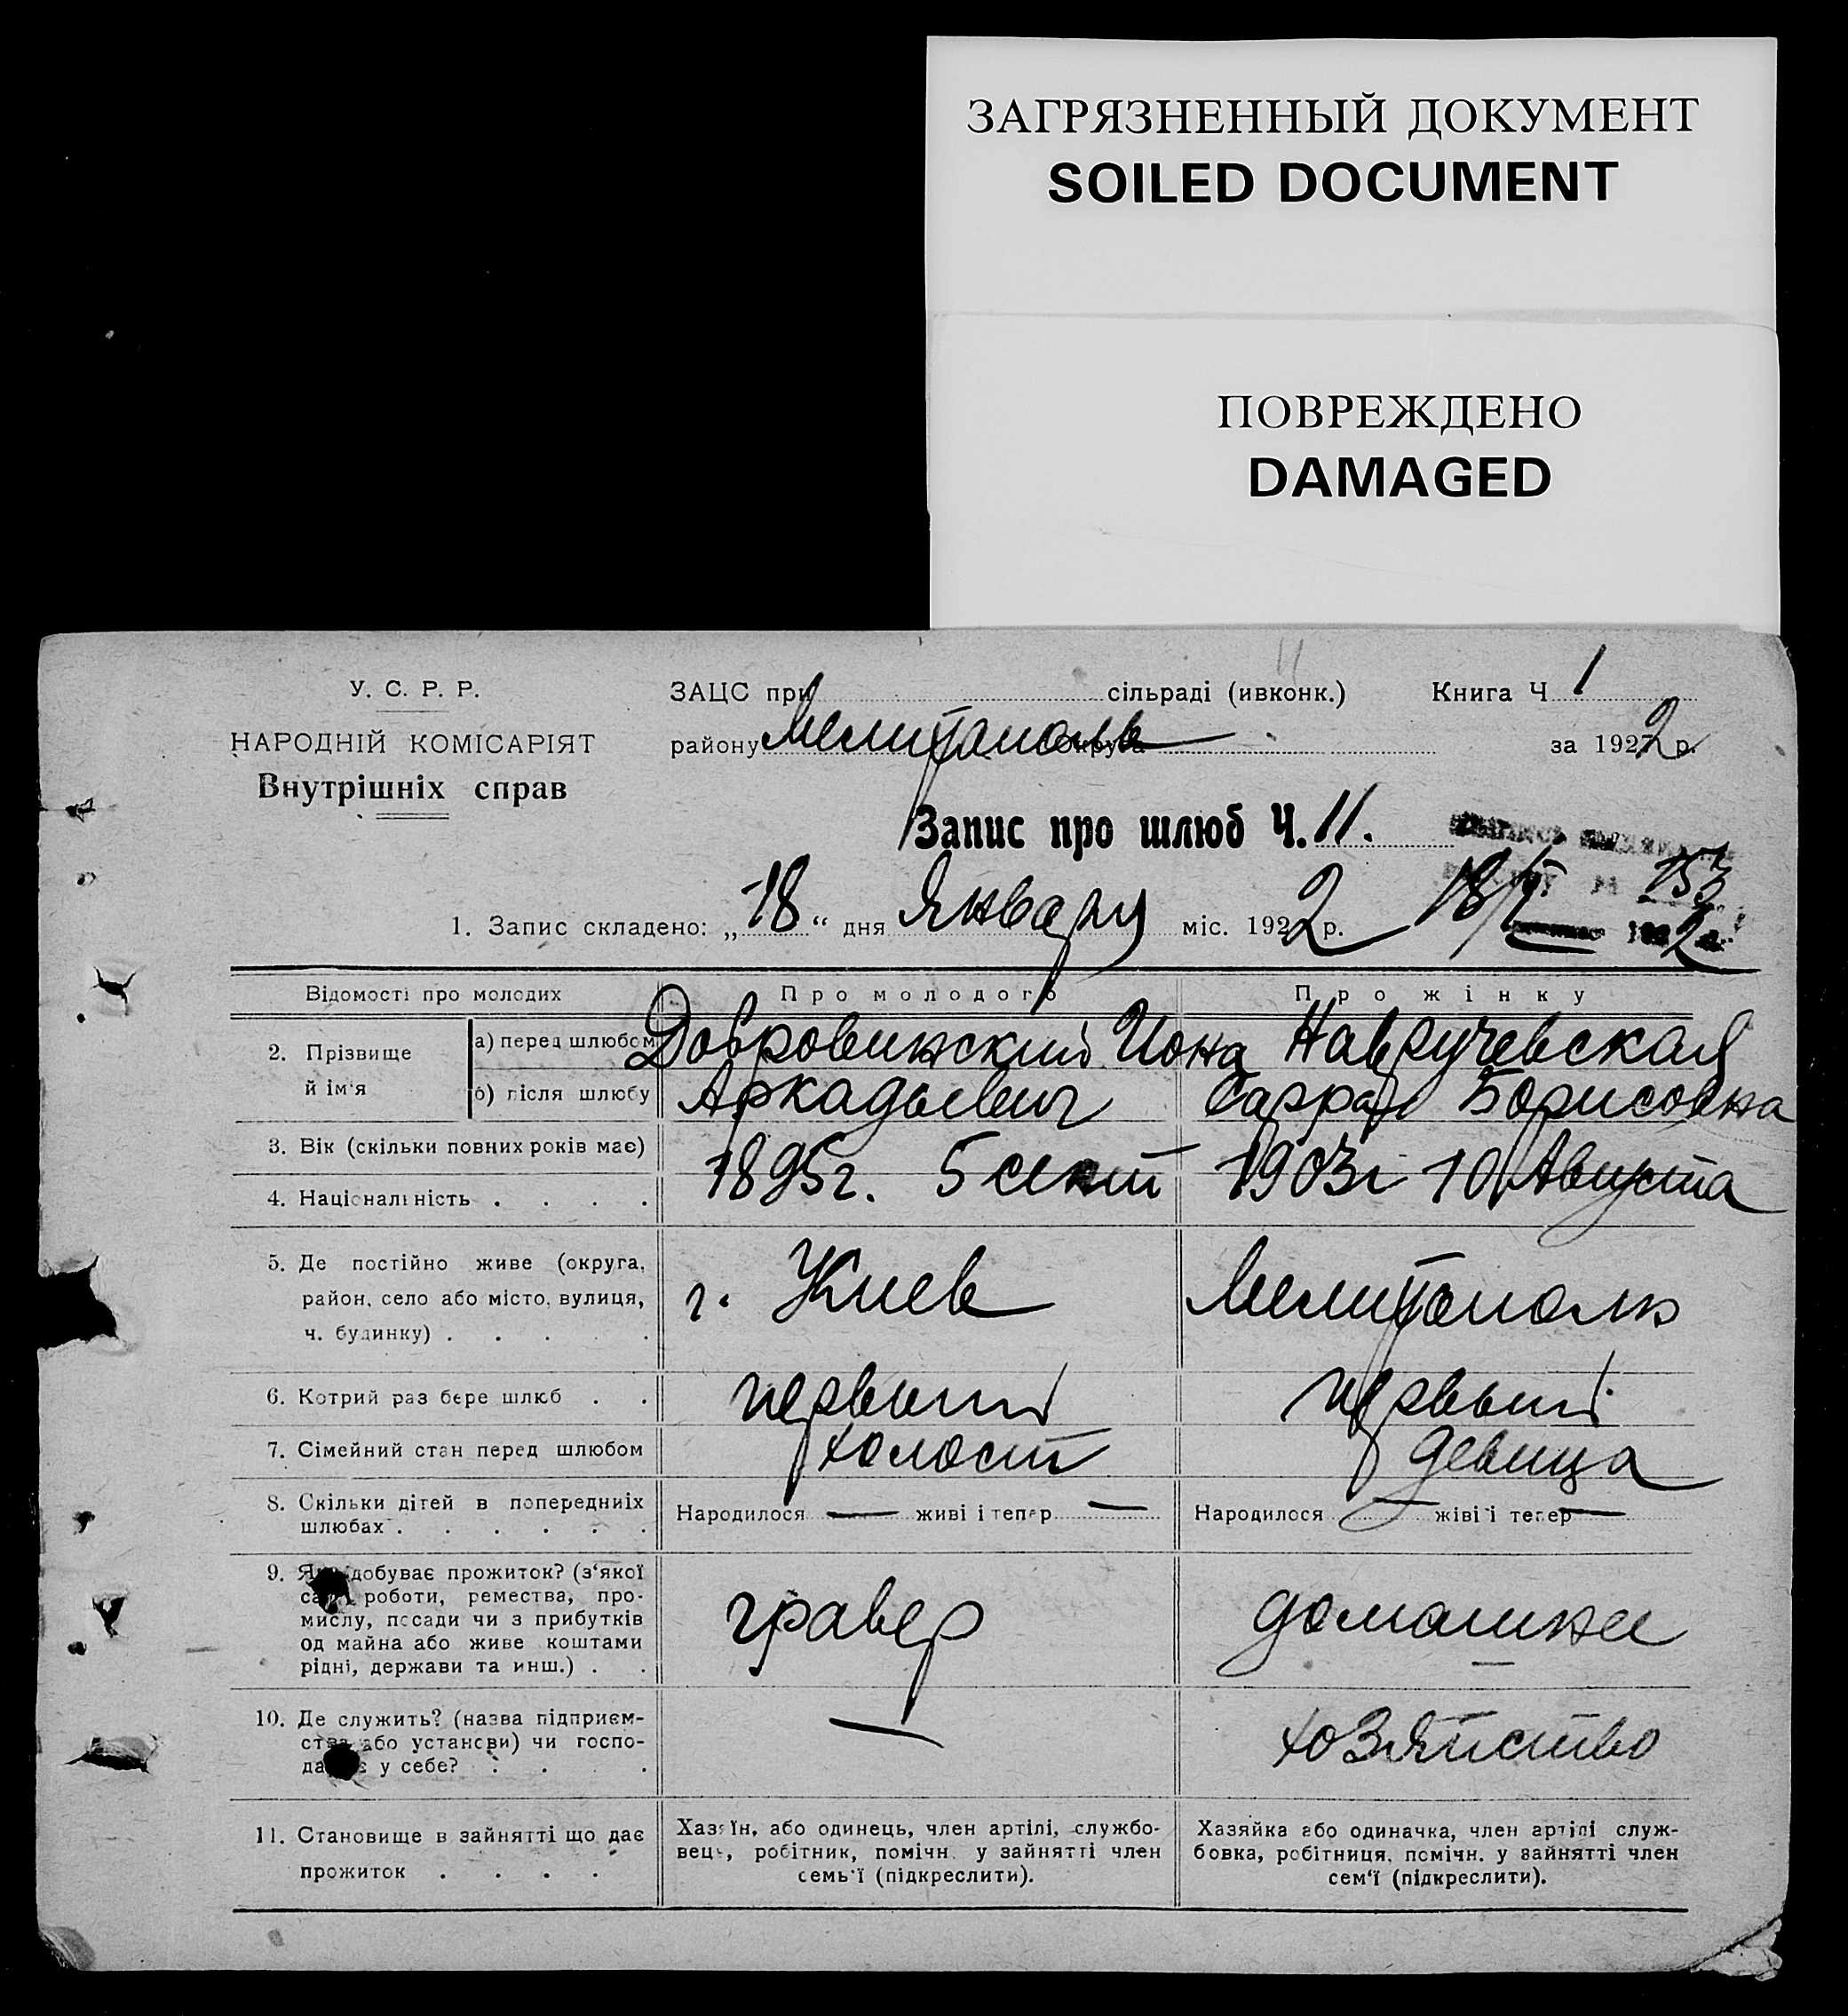 ЗАГРЯЗНЕННЫЙ ДОКУМЕНТ
SOILED DOCUMENT
ПОВРЕЖДЕНО
DAMAGED
11
У. С. Р. Р.
НАРОДНІЙ КОМІСАРІЯТ
Внутрішніх справ
ЗАЦС при сільраді (ивконк.) Книга Ч 1
району Мелитополь округа за 1922 р.
Запис про шлюб Ч. 11.
1. Запис складено: „18“ дня Январу міс. 1922 р. 18/I 153
Відомості про молодих Про молодого Про жінку
2. Прізвище й ім'я а) перед шлюбом Добровинский Иона Навручевская
б) після шлюбу Аркадьевич Сарра Борисовна
3. Вік (скільки повних років має) 1895г. 5 сент 1903г 10 Августа
4. Національність . . . .
5. Де постійно живе (округа, г. Киев Мелитополь
район, село або місто, вулиця,
ч. будинку) . . . . .
6. Котрий раз бере шлюб . . первый первый
7. Сімейний стан перед шлюбом холост девица
8. Скільки дітей в попередниіх Народилося — живі і тепер — Народилося — жіві і тепер —
шлюбах . . . . . .
9. Як здобуває прожиток? (з'якої гравер домашнее
саме роботи, ремества, про-
мислу, посади чи з прибутків
од майна або живе коштами
рідні, держави та инш.) . .
10. Де служить? (назва підприєм- — хозяйство
ства або установи) чи госпо-
дарює у себе? . . .
11. Становище в зайнятті що дає Хазяїн, або одинець, член артілі, службо- Хазяйка або одиначка, член артілі служ-
прожиток . . . . вець, робітник, помічн. у зайнятті член бовка, робітниця, помічн. у зайнятті член
семь'ї (підкреслити). сем'ї (підкреслити).